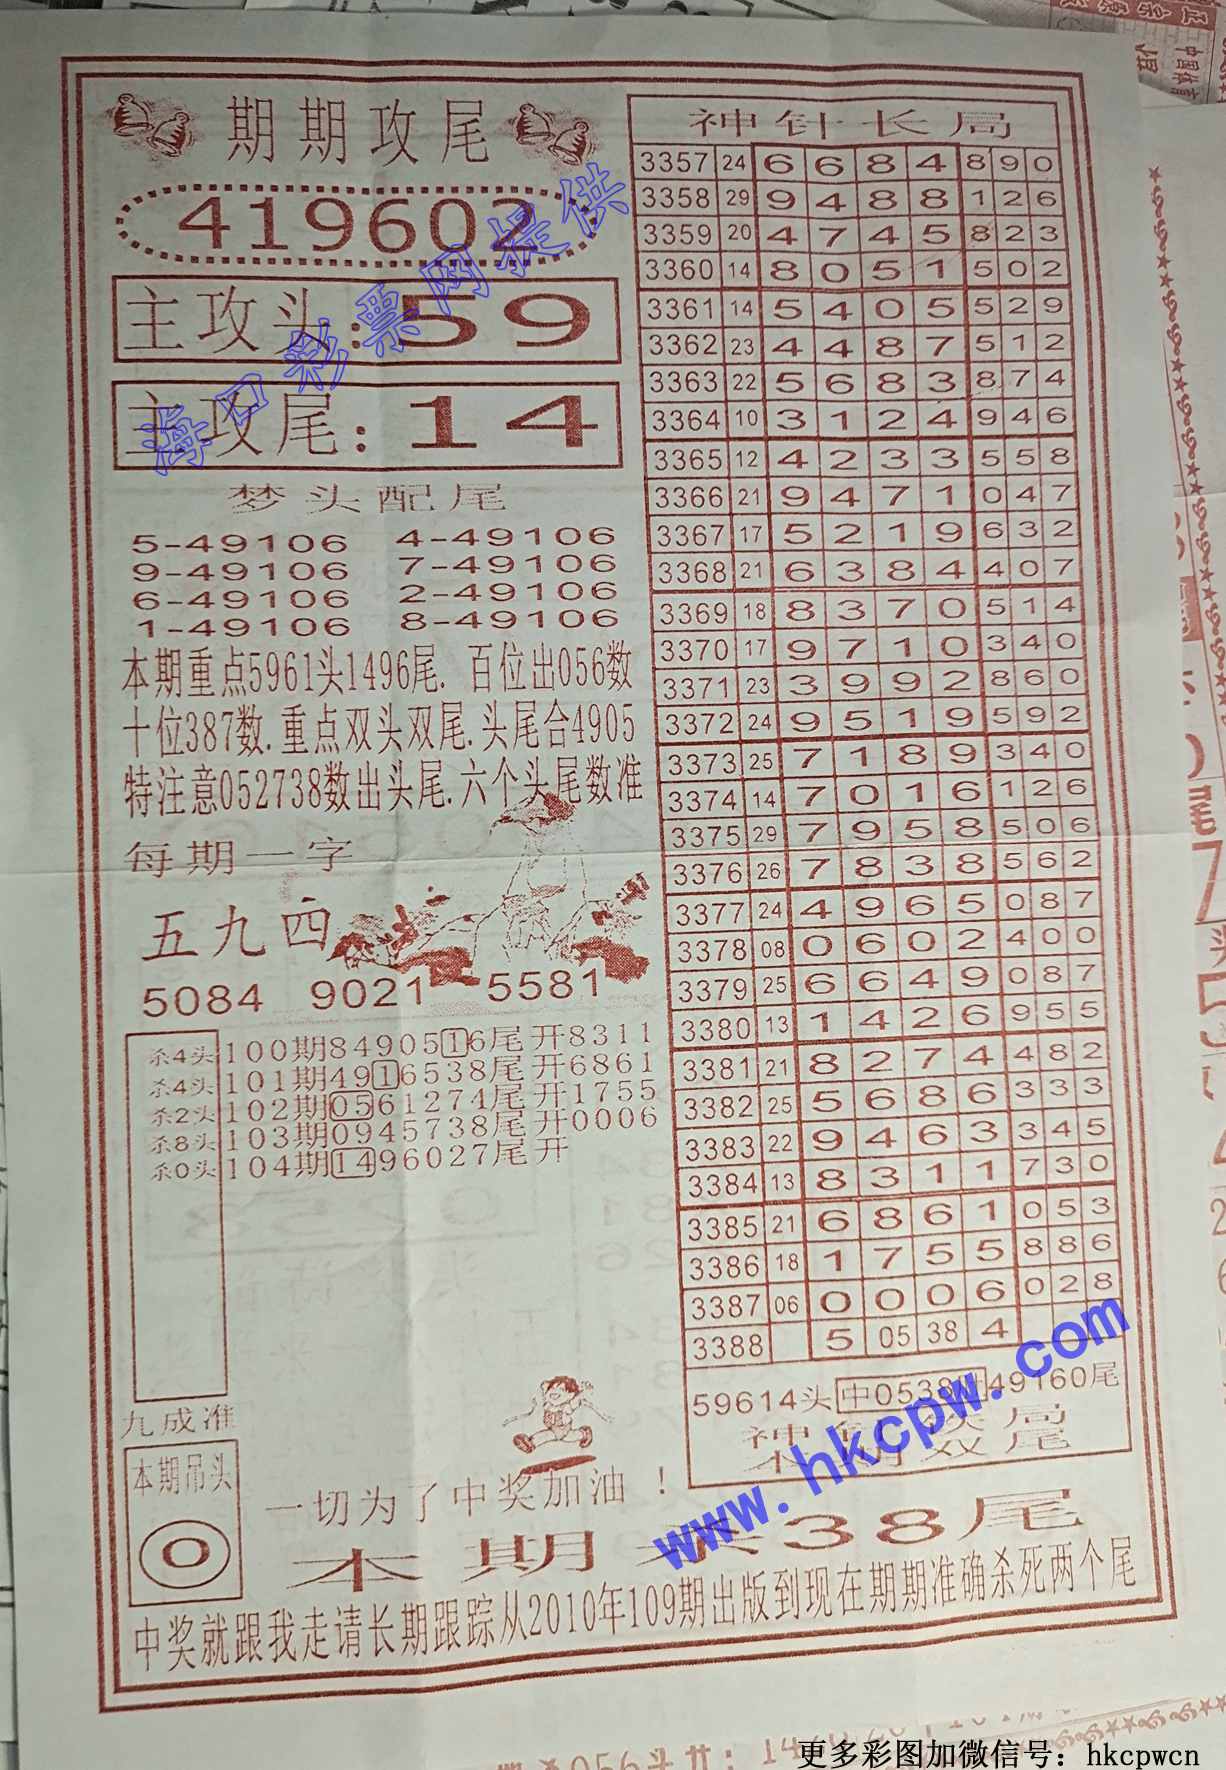 期期攻尾
419602
主攻头:59
主攻尾:14
梦头配尾
5-49106 4-49106
9-49106 7-49106
6-49106 2-49106
1-49106 8-49106
本期重点5961头1496尾. 百位出056数
十位387数.重点双头双尾.头尾合4905
特注意052738数出头尾.六个头尾数准
每期一字
五九四
5084 9021 5581
杀4头 100期8490516尾开8311
杀4头 101期4916538尾开6861
杀2头 102期0561274尾开1755
杀8头 103期0945738尾开0006
杀0头 104期1496027尾开
九成准
本期吊头
0
一切为了中奖加油!
神针长局
3357 24 6 6 8 4 8 9 0
3358 29 9 4 8 8 1 2 6
3359 20 4 7 4 5 8 2 3
3360 14 8 0 5 1 5 0 2
3361 14 5 4 0 5 5 2 9
3362 23 4 4 8 7 5 1 2
3363 22 5 6 8 3 8 7 4
3364 10 3 1 2 4 9 4 6
3365 12 4 2 3 3 5 5 8
3366 21 9 4 7 1 0 4 7
3367 17 5 2 1 9 6 3 2
3368 21 6 3 8 4 4 0 7
3369 18 8 3 7 0 5 1 4
3370 17 9 7 1 0 3 4 0
3371 23 3 9 9 2 8 6 0
3372 24 9 5 1 9 5 9 2
3373 25 7 1 8 9 3 4 0
3374 14 7 0 1 6 1 2 6
3375 29 7 9 5 8 5 0 6
3376 26 7 8 3 8 5 6 2
3377 24 4 9 6 5 0 8 7
3378 08 0 6 0 2 4 0 0
3379 25 6 6 4 9 0 8 7
3380 13 1 4 2 6 9 5 5
3381 21 8 2 7 4 4 8 2
3382 25 5 6 8 6 3 3 3
3383 22 9 4 6 3 3 4 5
3384 13 8 3 1 1 7 3 0
3385 21 6 8 6 1 0 5 3
3386 18 1 7 5 5 8 8 6
3387 06 0 0 0 6 0 2 8
3388 5 05 38 4
59614头 中0538 49160尾
本期杀38尾
中奖就跟我走请长期跟踪从2010年109期出版到现在期期准确杀死两个尾
海口彩票网提供
www.hkcpw.com
更多彩图加微信号: hkcpwcn